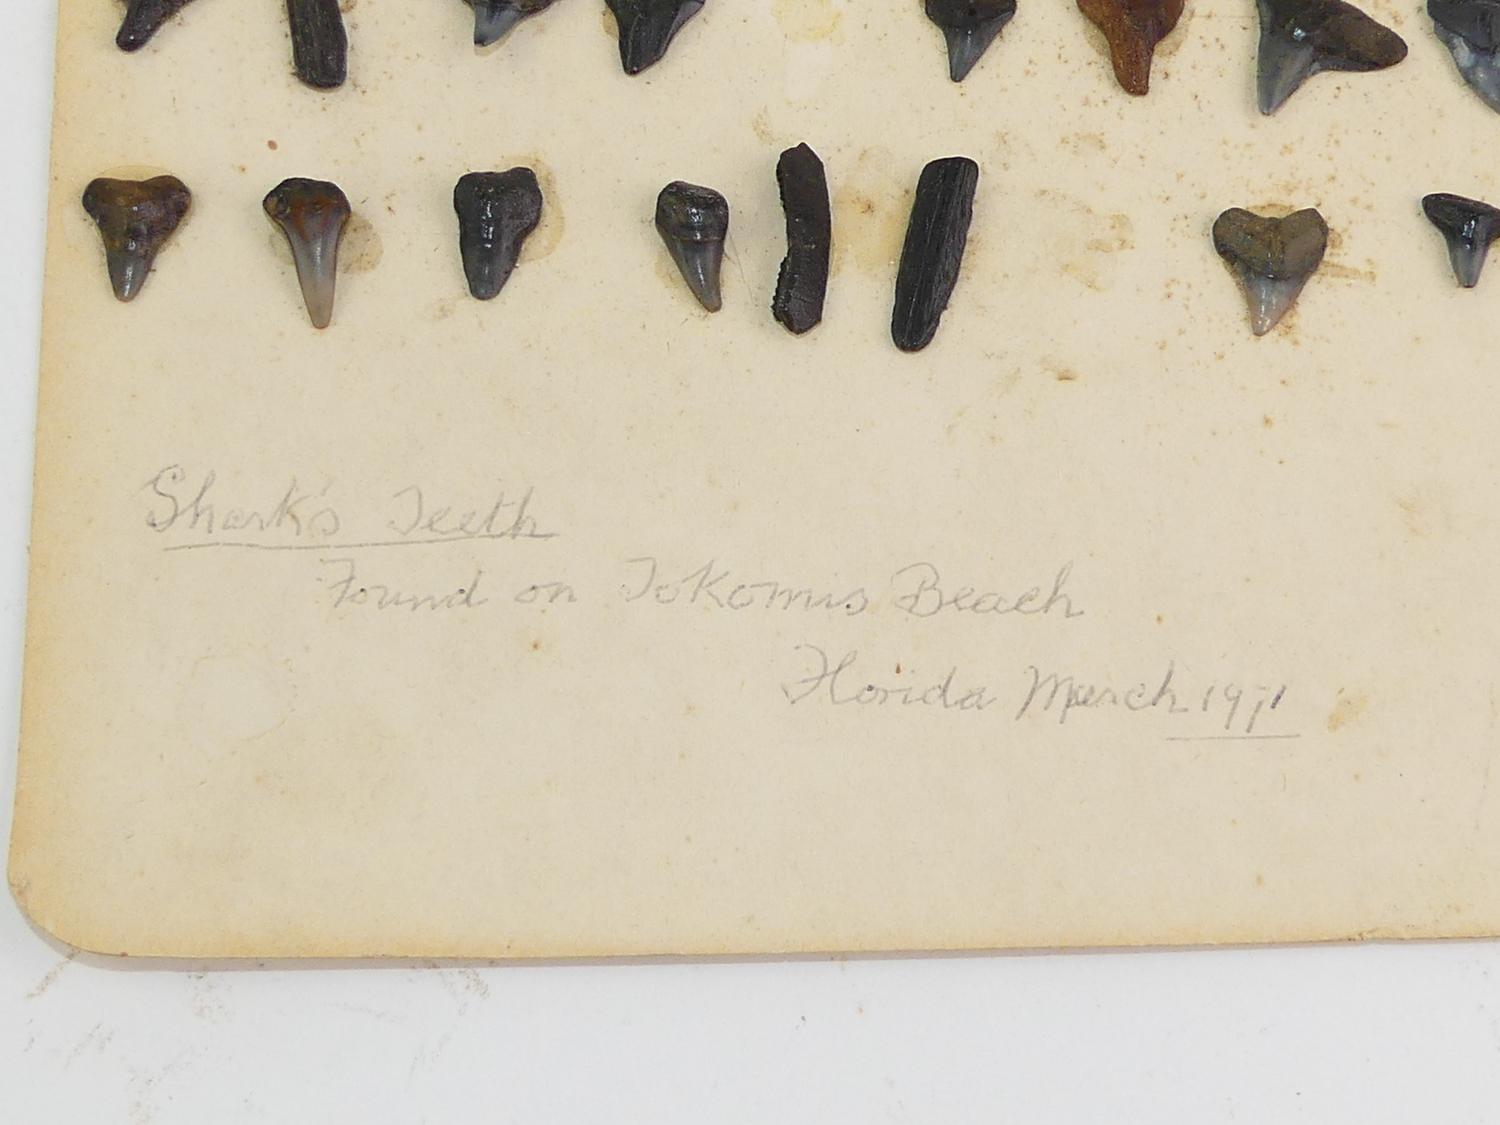 Shark's Teeth
Found on Tokomis Beach
Florida March 1971